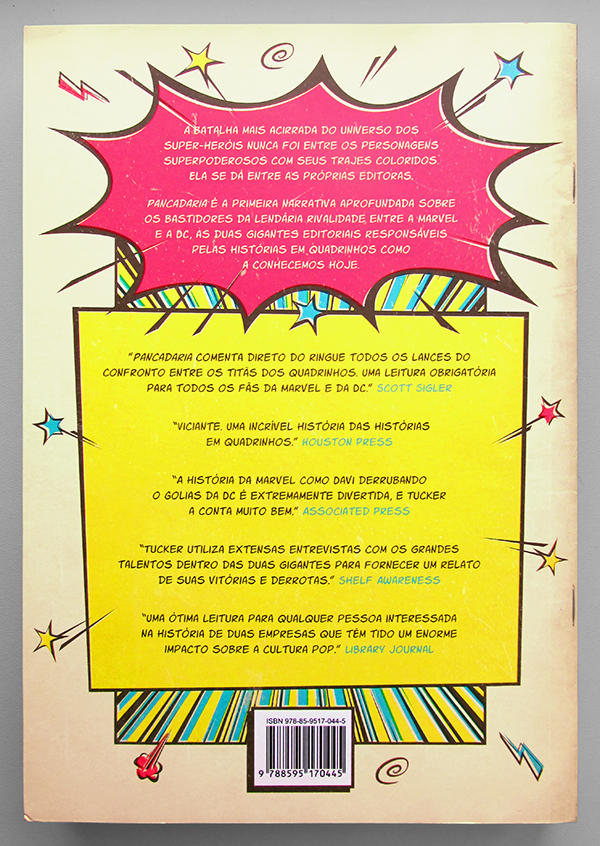 A BATALHA MAIS ACIRRADA DO UNIVERSO DOS
SUPER-HERÓIS NUNCA FOI ENTRE OS PERSONAGENS
SUPERPODEROSOS COM SEUS TRAJES COLORIDOS.
ELA SE DÁ ENTRE AS PRÓPRIAS EDITORAS.
PANCADARIA É A PRIMEIRA NARRATIVA APROFUNDADA SOBRE
OS BASTIDORES DA LENDÁRIA RIVALIDADE ENTRE A MARVEL
E A DC, AS DUAS GIGANTES EDITORIAIS RESPONSÁVEIS
PELAS HISTÓRIAS EM QUADRINHOS COMO
A CONHECEMOS HOJE.
"PANCADARIA COMENTA DIRETO DO RINGUE TODOS OS LANCES DO
CONFRONTO ENTRE OS TITÃS DOS QUADRINHOS. UMA LEITURA OBRIGATÓRIA
PARA TODOS OS FÃS DA MARVEL E DA DC." SCOTT SIGLER
"VICIANTE. UMA INCRÍVEL HISTÓRIA DAS HISTÓRIAS
EM QUADRINHOS." HOUSTON PRESS
"A HISTÓRIA DA MARVEL COMO DAVI DERRUBANDO
O GOLIAS DA DC É EXTREMAMENTE DIVERTIDA, E TUCKER
A CONTA MUITO BEM." ASSOCIATED PRESS
"TUCKER UTILIZA EXTENSAS ENTREVISTAS COM OS GRANDES
TALENTOS DENTRO DAS DUAS GIGANTES PARA FORNECER UM RELATO
DE SUAS VITÓRIAS E DERROTAS." SHELF AWARENESS
"UMA ÓTIMA LEITURA PARA QUALQUER PESSOA INTERESSADA
NA HISTÓRIA DE DUAS EMPRESAS QUE TÊM TIDO UM ENORME
IMPACTO SOBRE A CULTURA POP." LIBRARY JOURNAL
ISBN 978-85-9517-044-5
9 788595 170445